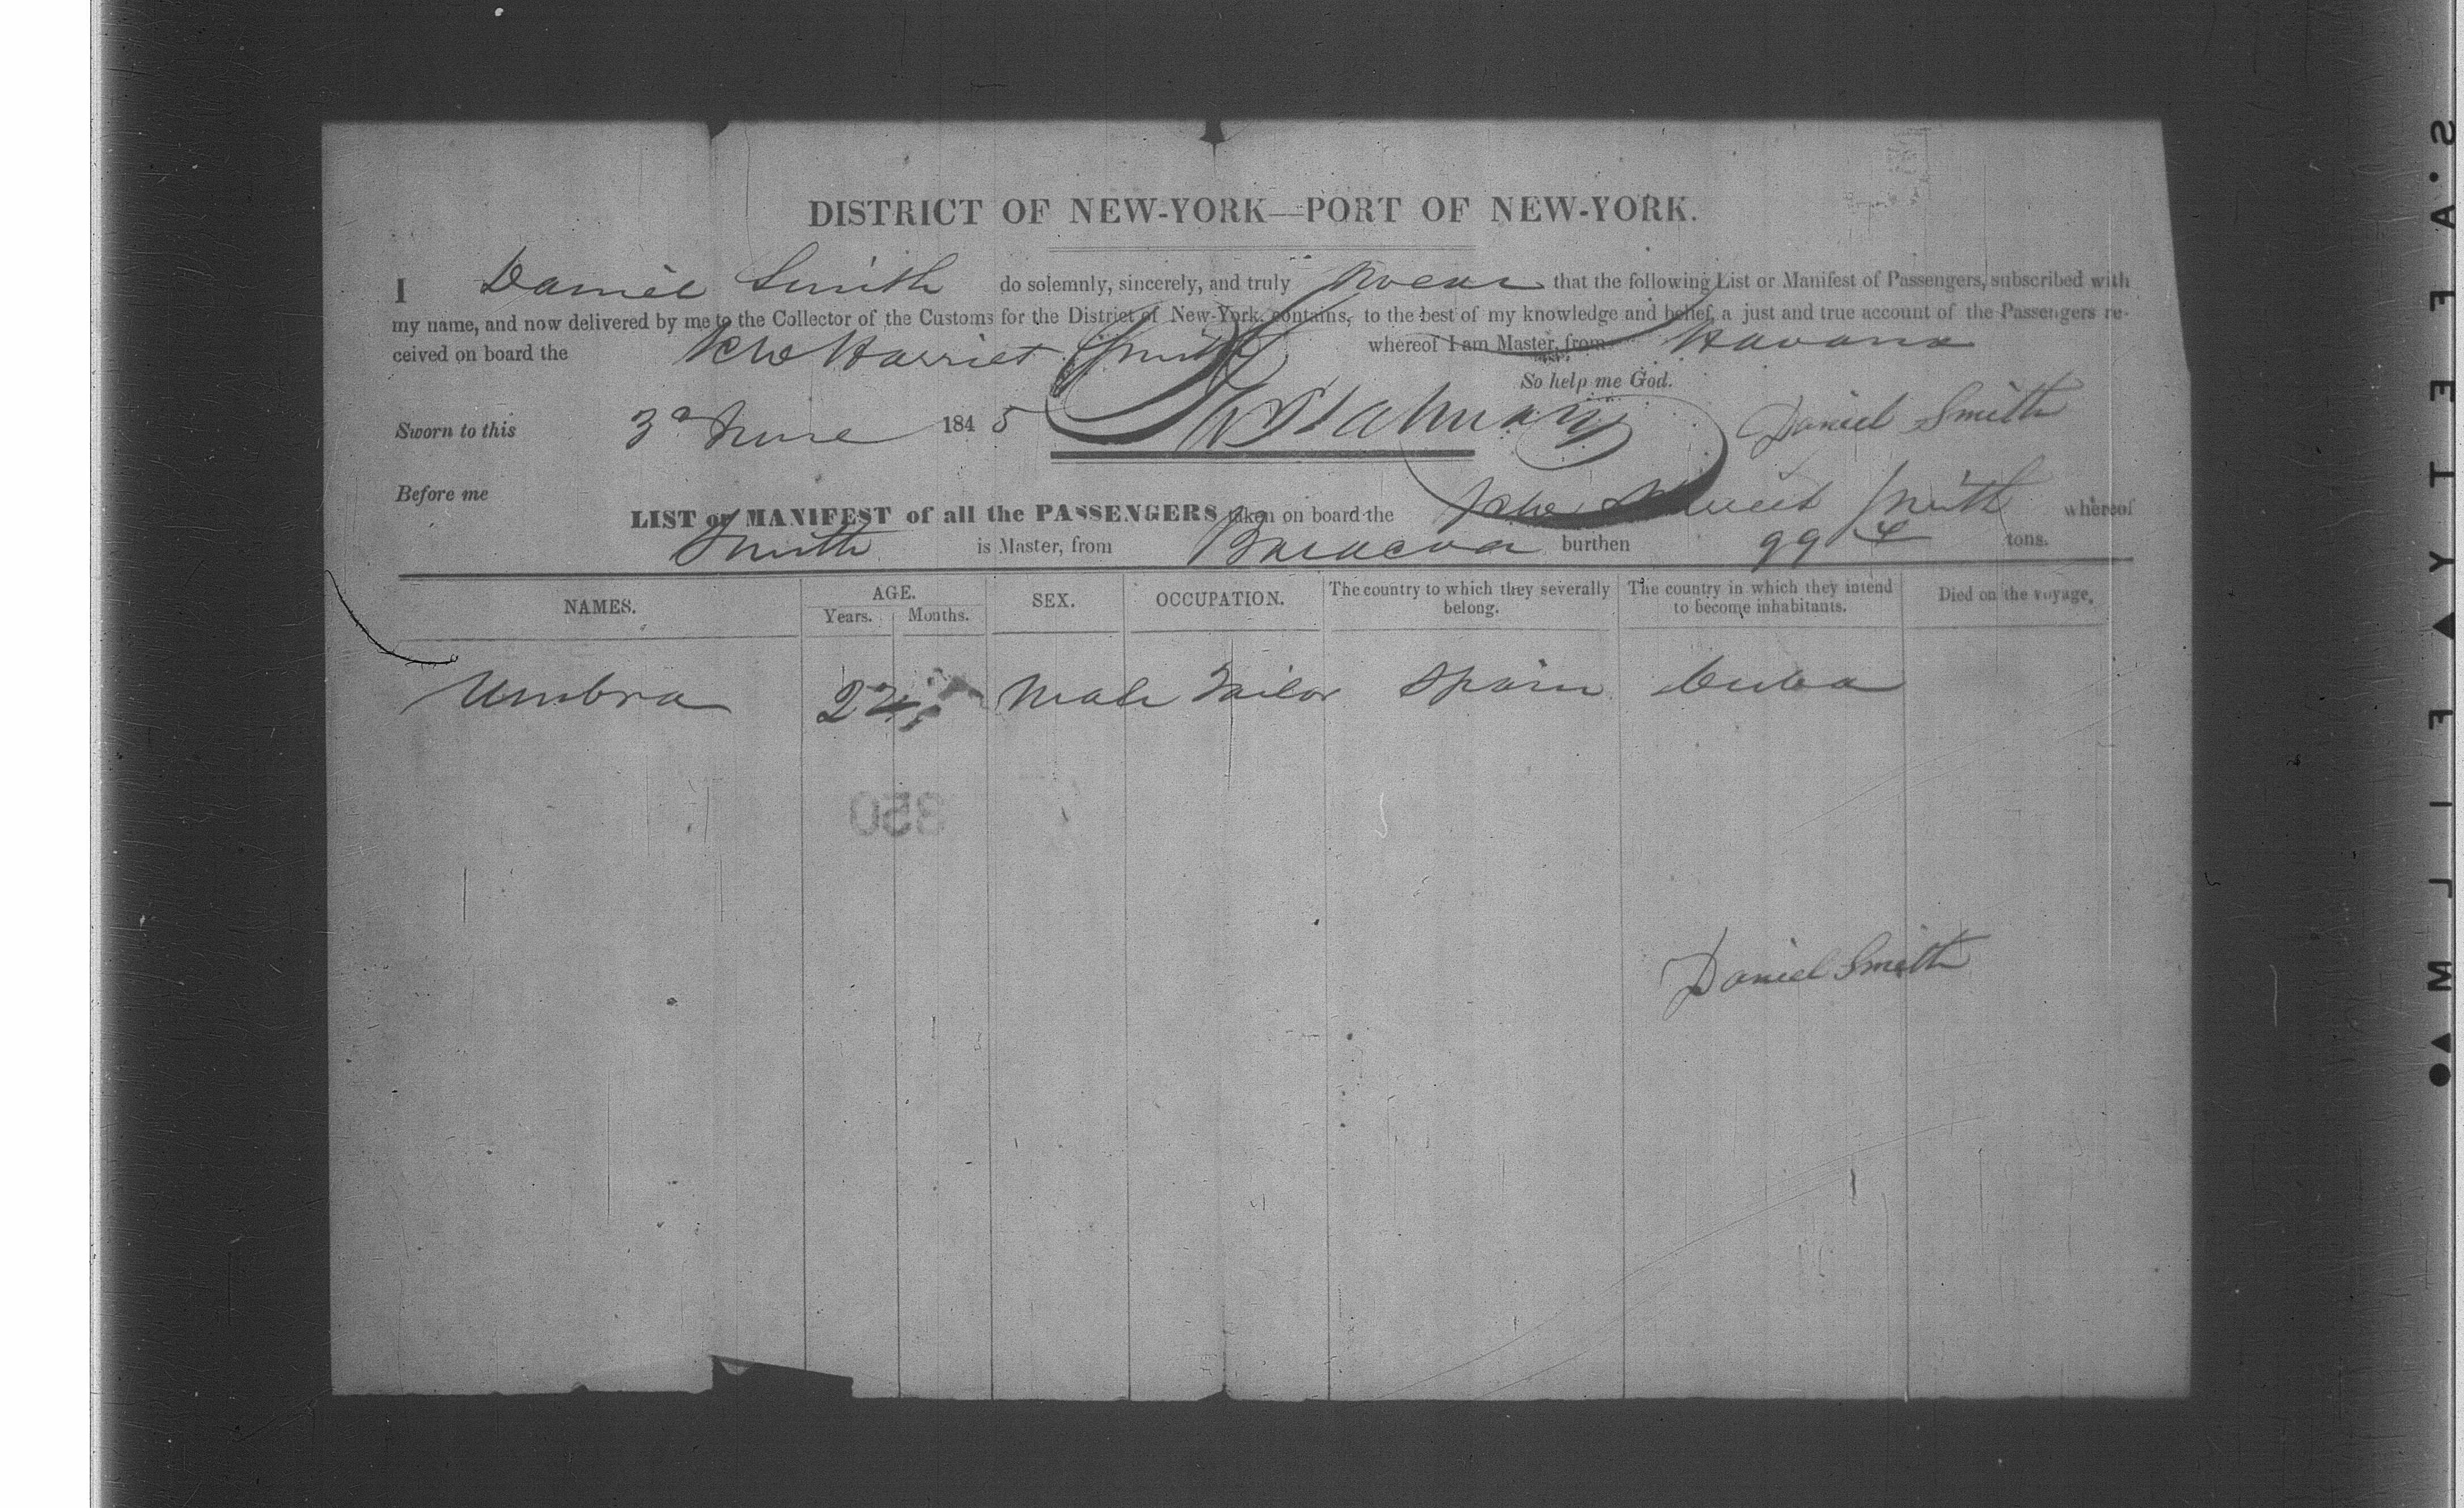 DISTRICT OF NEW-YORK—PORT OF NEW-YORK.
I Daniel Smith do solemnly, sincerely, and truly swear that the following List or Manifest of Passengers, subscribed with
my name, and now delivered by me to the Collector of the Customs for the District of New-York, contains, to the best of my knowledge and belief, a just and true account of the Passengers re-
ceived on board the Sch Harriet Smith whereof I am Master, from Havana
So help me God.
Sworn to this 3d June 1845 Daniel Smith
Before me
LIST or MANIFEST of all the PASSENGERS taken on board the Sch Harriet Smith whereof
Smith is Master, from Baracoa burthen 99 tons.
NAMES. AGE. SEX. OCCUPATION. The country to which they severally belong. The country in which they intend to become inhabitants. Died on the voyage,
Years. Months.
Umbra 24 Male Tailor Spain Cuba
350
Daniel Smith